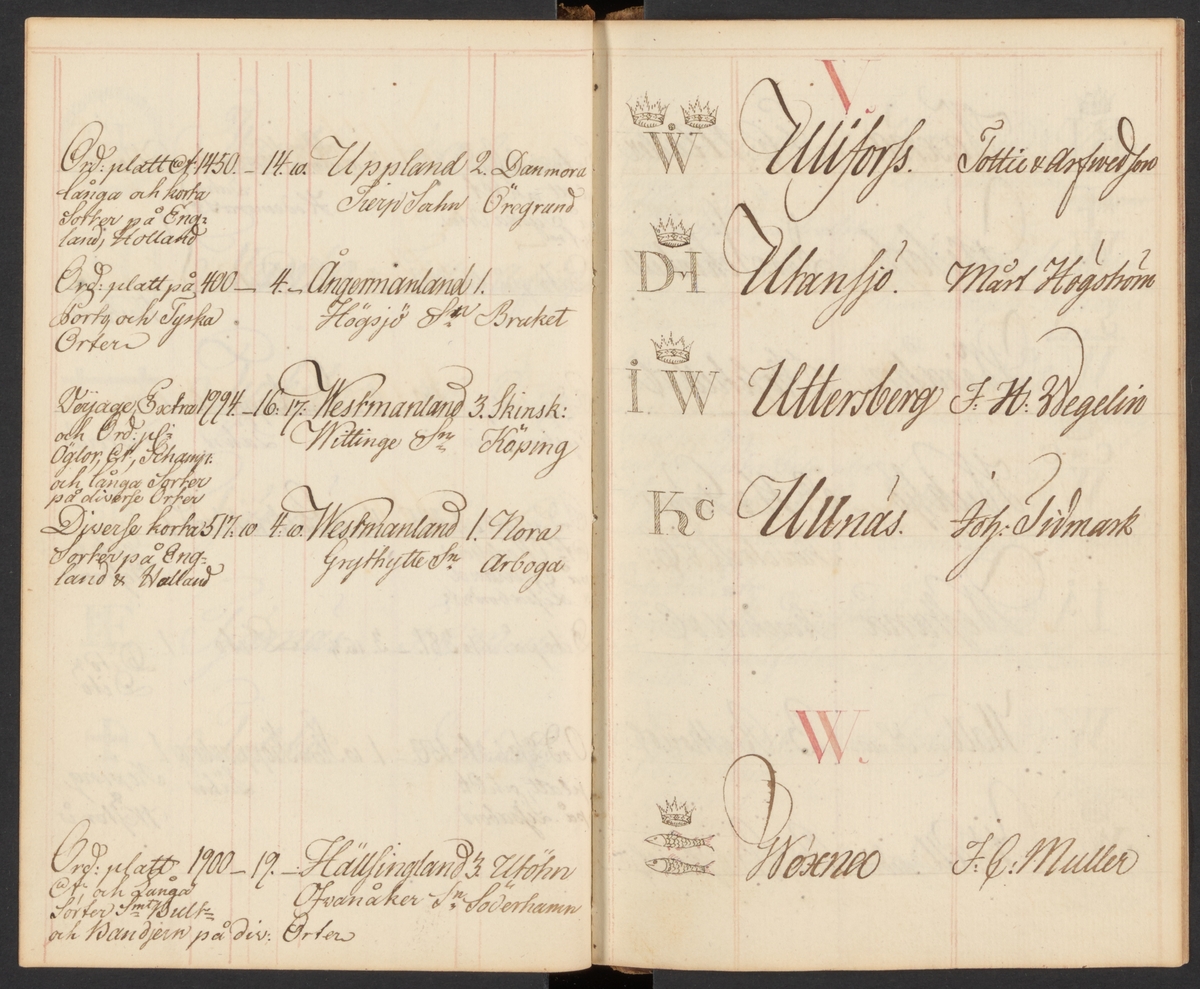 Ord: platt Ct: 1450. – 14: 10. Uppland 2. Danmora
långa och korta Tierp Sochn Öregrund
Sorter på Eng-
land, Holland
Ord: platt på 400 – 4. – Ångermanland 1.
Portg och Tyska Högsjö Sn Bruket
Orter
Voyage, Extra 1994. – 16: 17: Westmanland 3. Skinsk:
och Ord: pl: Wittinge Sn Köping
Öglor, Ct,
och långa Sorter
på diverse Orter
Diverse korta 517: 10 4: 10. Westmanland 1. Nora
Sorter på Eng- Grythytte Sn Arboga
land & Holland
Ord: platt 1900 – 19. – Hällsingland 3. Utöhn
Ct: och Långa Ofvanåker Sn Söderhamn
Sorter Smt Bult-
och Bandjern på div: Orter
V.
W Ullforss. Tottie & Arfwedson
DH Utansjö. Mårt Högström
I W Uttersberg J. H. Wegelin
KC Ullnäs. Joh: Tidmark
W.
Woxna J. C. Muller